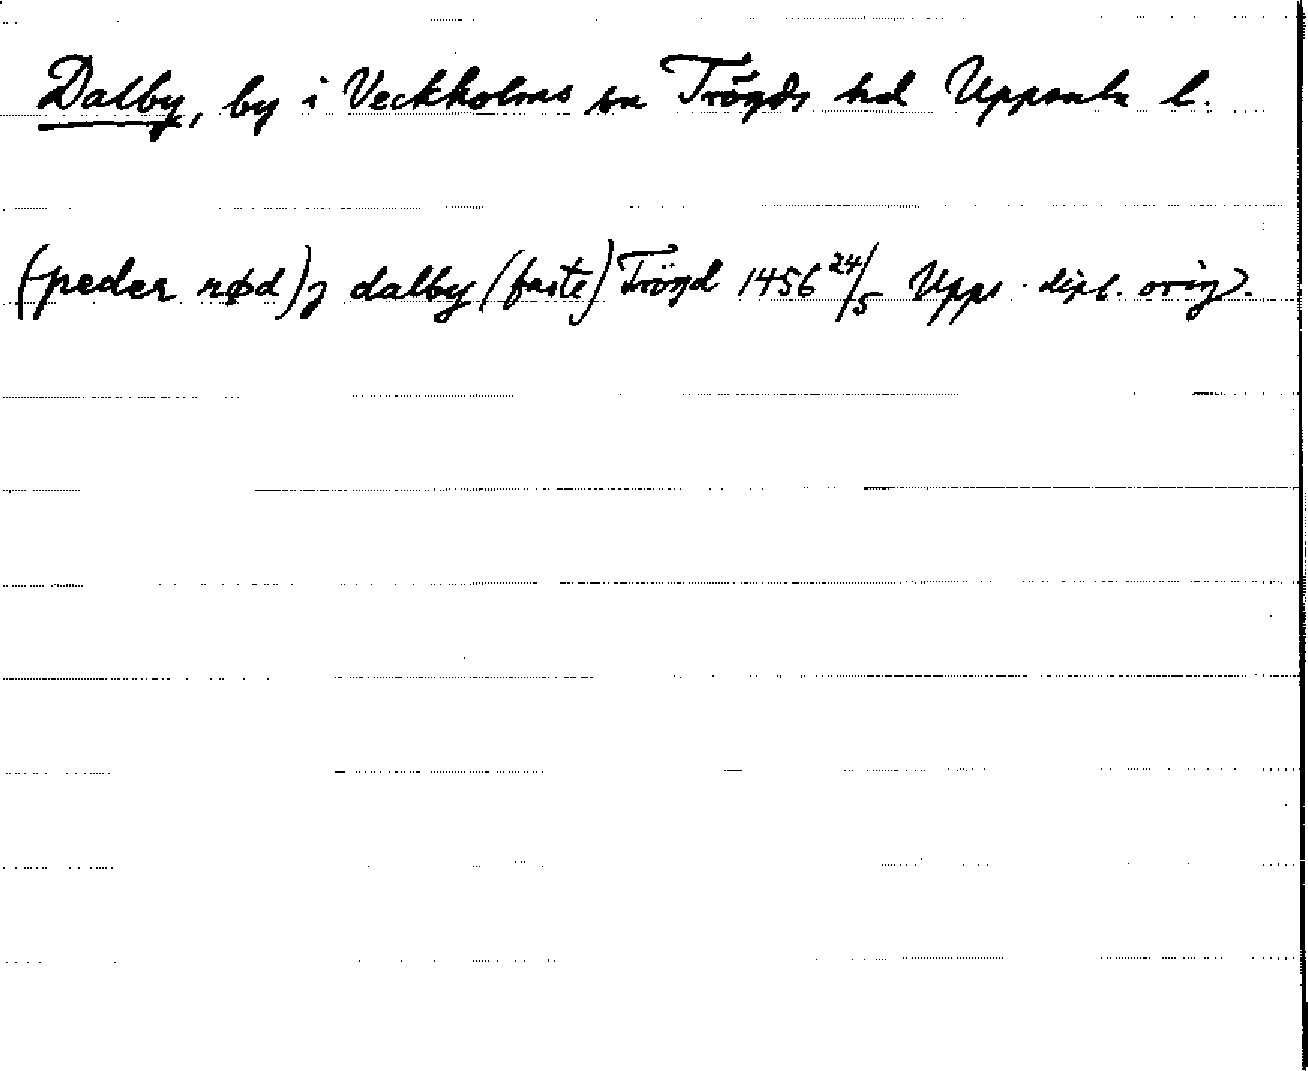 Dalby, by i Veckholms sn Trögds hd Uppsala l.
(peder rød) j dalby (faste) Trögd 1456 24/5 Upps. dipl. orig.